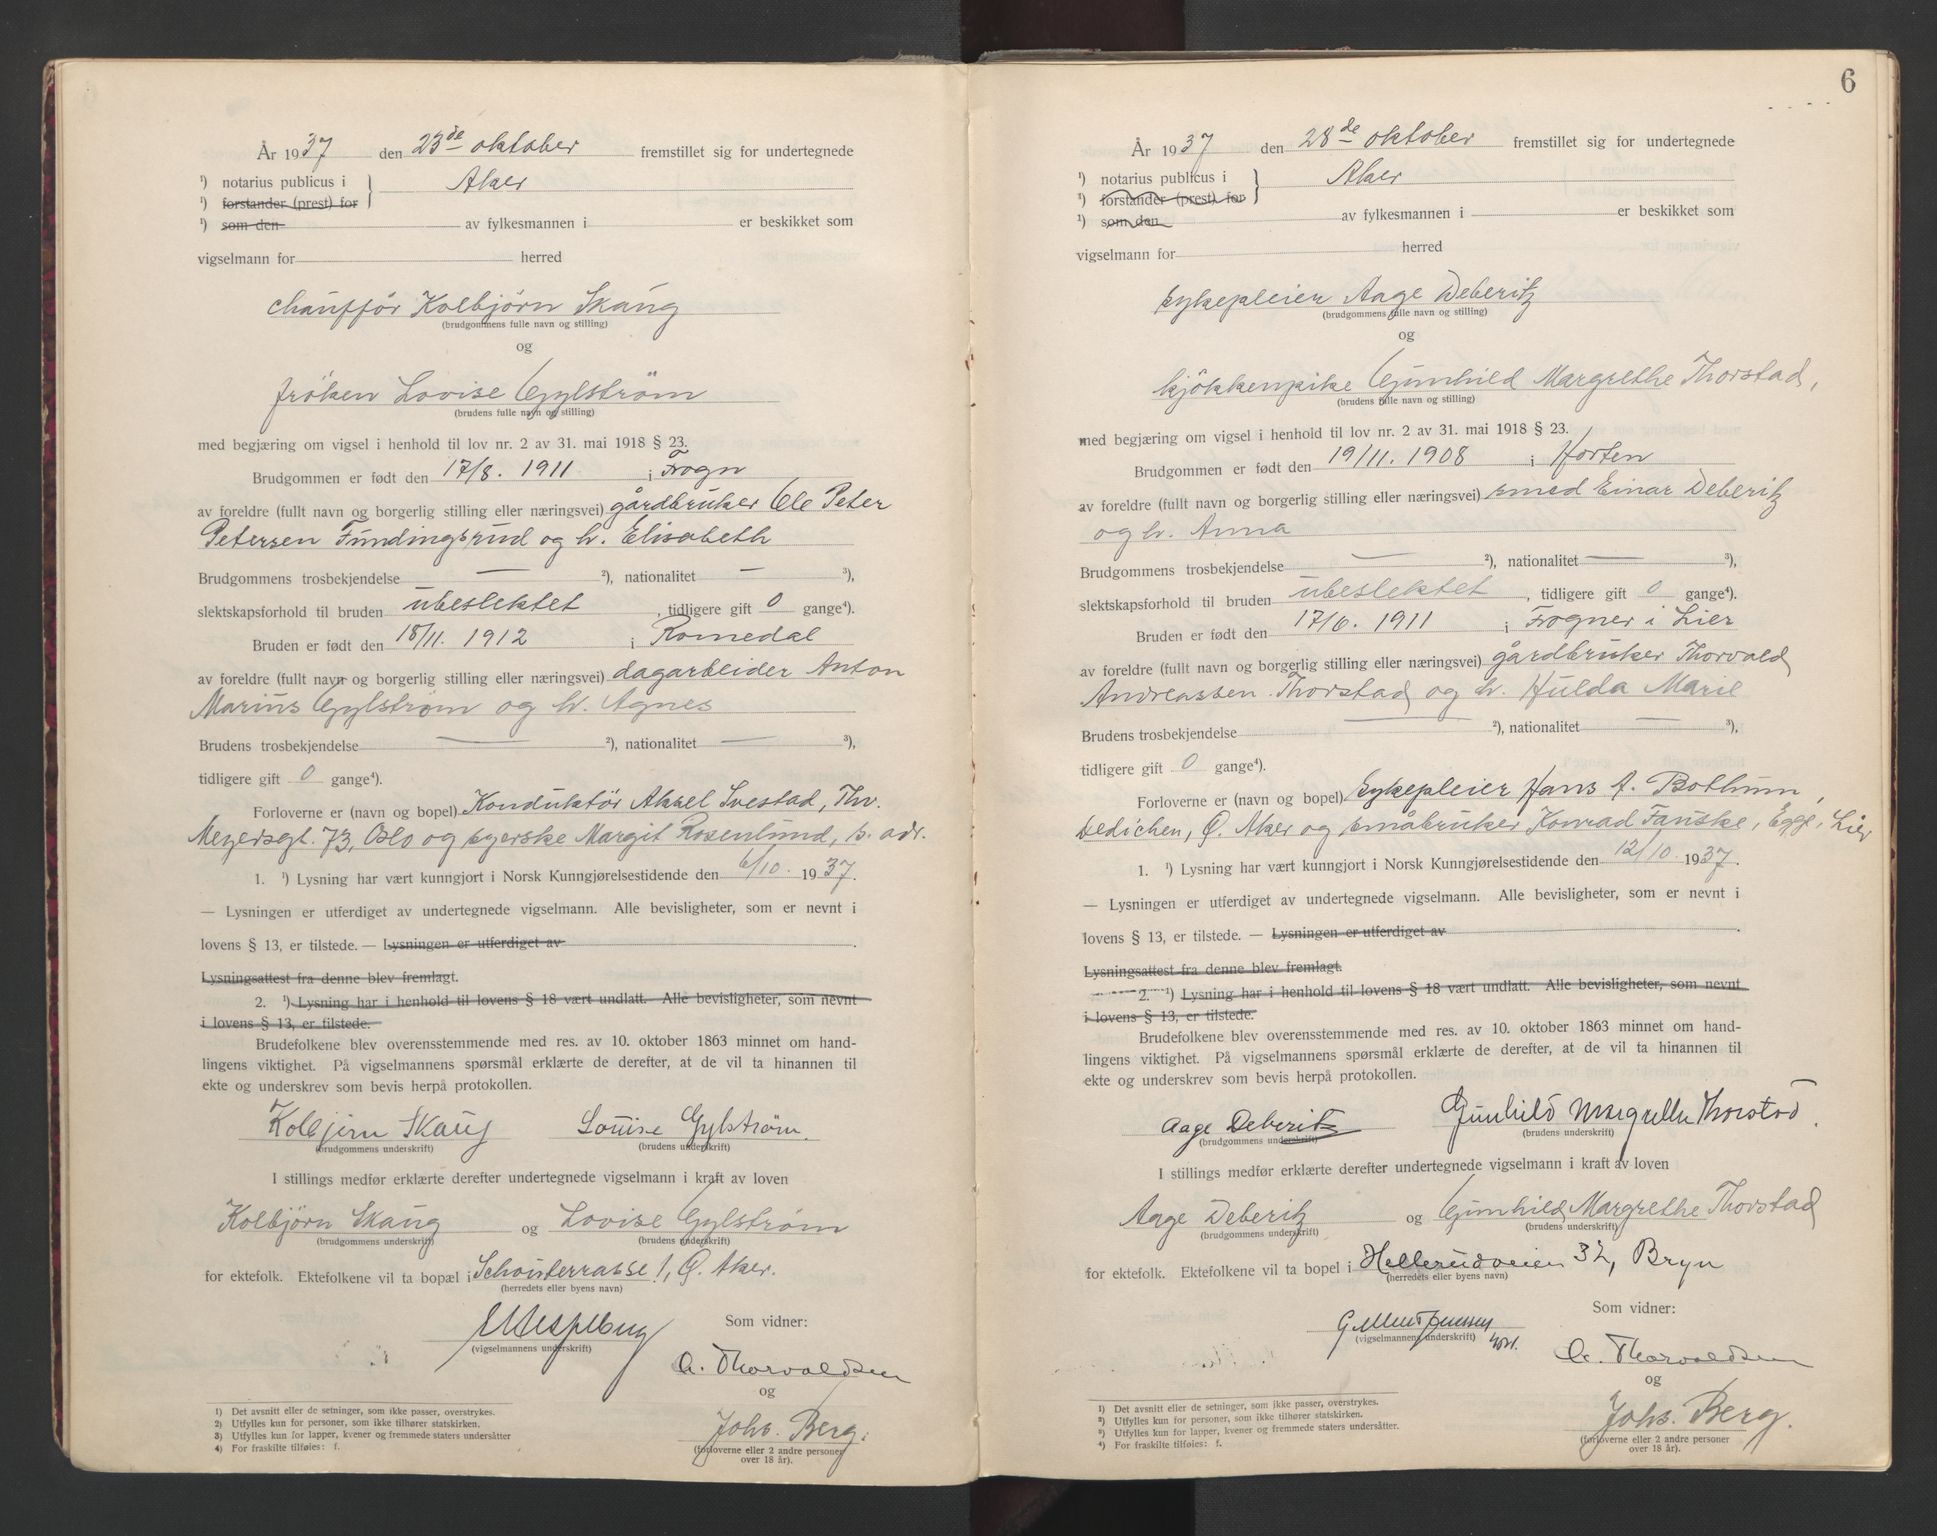 År 1937 den 23de oktober fremstillet sig for undertegnede
¹) notarius publicus i Aker
¹) forstander (prest) for
¹) som den av fylkesmannen i er beskikket som
vigselmann for herred
chaufför Kolbjörn Skaug
(brudgommens fulle navn og stilling)
og
fröken Lovise Gylström
(brudens fulle navn og stilling)
med begjæring om vigsel i henhold til lov nr. 2 av 31. mai 1918 § 23.
Brudgommen er født den 17/8. 1911 i Frogn
av foreldre (fullt navn og borgerlig stilling eller næringsvei) gårdbruker Ole Peter
Petersen Fundingsrud og h. Elisabeth
Brudgommens trosbekjendelse — ²), nationalitet — ³),
slektskapsforhold til bruden ubeslektet, tidligere gift 0 gange⁴).
Bruden er født den 18/11. 1912 i Romedal
av foreldre (fullt navn og borgerlig stilling eller næringsvei) dagarbeider Anton
Marius Gylström og h. Agnes
Brudens trosbekjendelse — ²), nationalitet — ³),
tidligere gift 0 gange⁴).
Forloverne er (navn og bopel) Konduktör Aksel Svestad, Thv.
Meyersgt. 73, Oslo og syerske Margit Rosenlund, s. adr.
1. ¹) Lysning har vært kunngjort i Norsk Kunngjørelsestidende den 6/10. 1937.
— Lysningen er utferdiget av undertegnede vigselmann. Alle bevisligheter, som er nevnt i
lovens § 13, er tilstede. — Lysningen er utferdiget av .
Lysningsattest fra denne blev fremlagt.
2. ¹) Lysning har i henhold til lovens § 18 vært undlatt. Alle bevisligheter, som nevnt
i lovens § 13, er tilstede.
Brudefolkene blev overensstemmende med res. av 10. oktober 1863 minnet om hand-
lingens viktighet. På vigselmannens spørsmål erklærte de derefter, at de vil ta hinannen til
ekte og underskrev som bevis herpå protokollen.
Kolbjørn Skaug Louise Gylstrøm.
(brudgommens underskrift) (brudens underskrift)
I stillings medfør erklærte derefter undertegnede vigselmann i kraft av loven
Kolbjörn Skaug og Lovise Gylström
(brudgommens underskrift) (brudens underskrift)
for ektefolk. Ektefolkene vil ta bopæl i Schouterrasse 1, Ø. Aker.
(herredets eller byens navn)
Som vidner:
(vigselmannens underskrift)
A. Thorvaldsen
og
Johs. Berg.
(forloverne eller 2 andre personer
over 18 år).
1) Det avsnitt eller de setninger, som ikke passer, overstrykes.
2) Utfylles kun for personer, som ikke tilhører statskirken.
3) Utfylles kun for lapper, kvener og fremmede staters undersåtter
4) For fraskilte tilføies: f.
6
År 1937 den 28de oktober fremstillet sig for undertegnede
¹) notarius publicus i Aker
¹) forstander (prest) for
¹) som den av fylkesmannen i er beskikket som
vigselmann for herred
sykepleier Aage Deberitz
(brudgommens fulle navn og stilling)
og
kjökkenpike Gunhild Margrethe Thorstad,
(brudens fulle navn og stilling)
med begjæring om vigsel i henhold til lov nr. 2 av 31. mai 1918 § 23.
Brudgommen er født den 19/11. 1908 i Horten
av foreldre (fullt navn og borgerlig stilling eller næringsvei) smed Einar Deberitz
og h. Anna
Brudgommens trosbekjendelse — ²), nationalitet — ³),
slektskapsforhold til bruden ubeslektet, tidligere gift 0 gange⁴).
Bruden er født den 17/6. 1911 i Frogner i Lier
av foreldre (fullt navn og borgerlig stilling eller næringsvei) gårdbruker Thorvald
Andreassen Thorstad og h. Hulda Marie
Brudens trosbekjendelse — ²), nationalitet — ³),
tidligere gift 0 gange⁴).
Forloverne er (navn og bopel) sykepleier Hans A. Bothun,
Dedichen, Ø. Aker og småbruker Konrad Fauske, Egge, Lier
1. ¹) Lysning har vært kunngjort i Norsk Kunngjørelsestidende den 12/10. 1937.
— Lysningen er utferdiget av undertegnede vigselmann. Alle bevisligheter, som er nevnt i
lovens § 13, er tilstede. — Lysningen er utferdiget av .
Lysningsattest fra denne blev fremlagt.
2. ¹) Lysning har i henhold til lovens § 18 vært undlatt. Alle bevisligheter, som nevnt
i lovens § 13, er tilstede.
Brudefolkene blev overensstemmende med res. av 10. oktober 1863 minnet om hand-
lingens viktighet. På vigselmannens spørsmål erklærte de derefter, at de vil ta hinannen til
ekte og underskrev som bevis herpå protokollen.
Aage Deberitz Gunhild Margrethe Thorstad.
(brudgommens underskrift) (brudens underskrift)
I stillings medfør erklærte derefter undertegnede vigselmann i kraft av loven
Aage Deberitz og Gunhild Margrethe Thorstad
(brudgommens underskrift) (brudens underskrift)
for ektefolk. Ektefolkene vil ta bopel i Hellerudveien 32, Bryn
(herredets eller byens navn)
Som vidner:
(vigselmannens underskrift)
A. Thorvaldsen
og
Johs. Berg.
(forloverne eller 2 andre personer
over 18 år).
¹) Det avsnitt eller de setninger, som ikke passer, overstrykes.
²) Utfylles kun for personer, som ikke tilhører statskirken.
³) Utfylles kun for lapper, kvener og fremmede staters undersåtter.
⁴) For fraskilte tilføies: f.